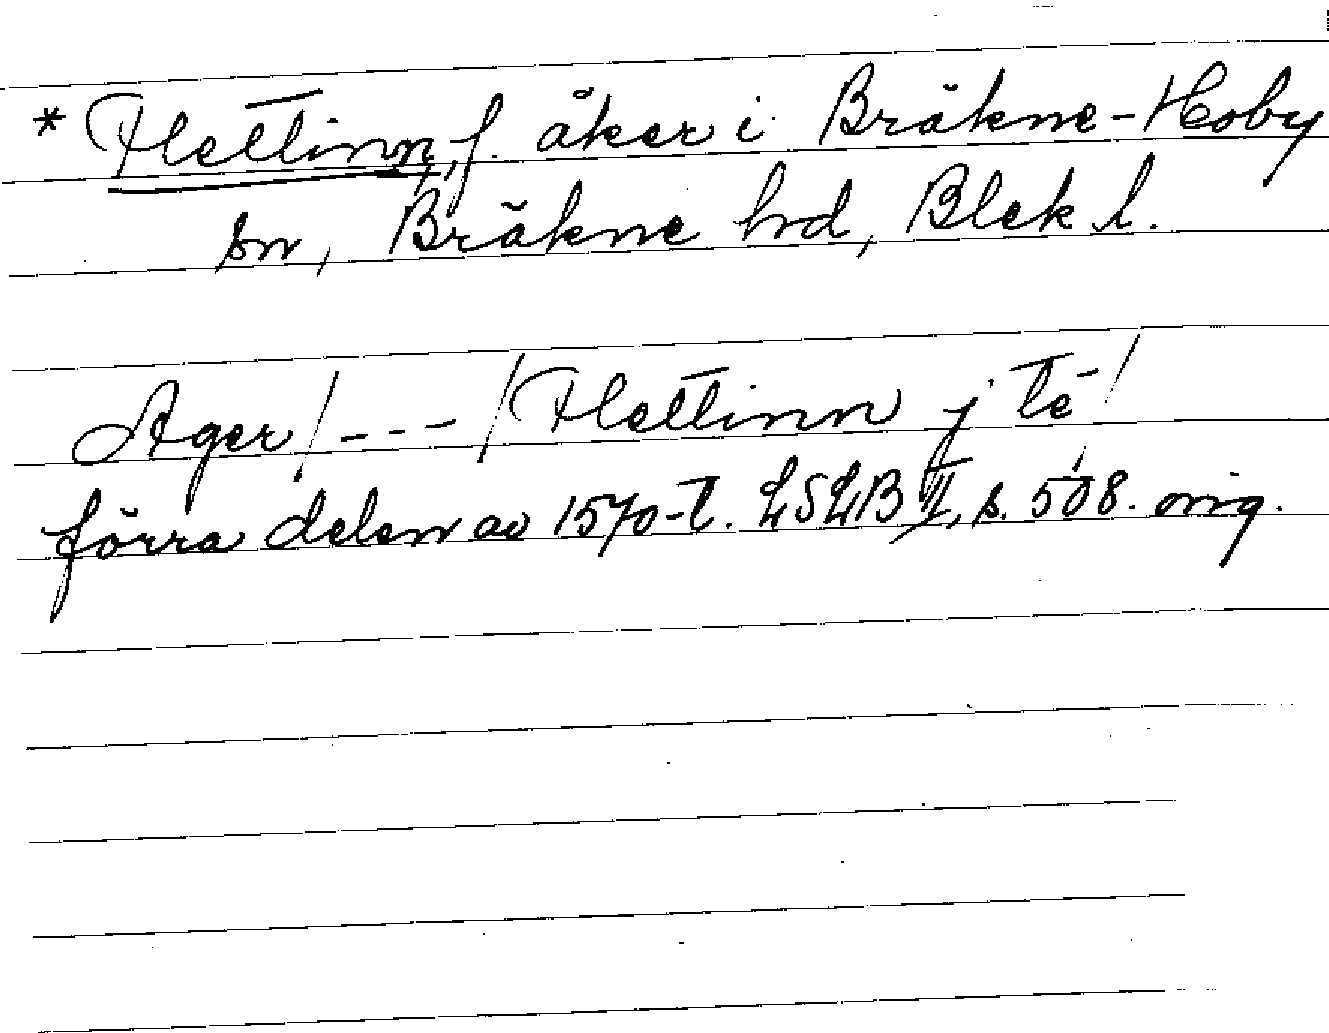 * Hettinn, f. åker i Bräkne-Hoby
sn, Bräkne hd, Blek l.
Ager /---/ Hettinn j té /
förra delen av 1570-t. LSLB II, s. 508. orig.